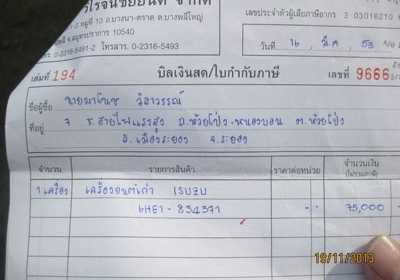 วโรจน์ชัยยนต์ จำกัด
หมู่ที่ 13 ถ.บางนา-ตราด ต.บางพลีใหญ่
จ.สมุทรปราการ 10540
0-2316-5491-2 โทรสาร. 0-2316-5493
เลขประจำตัวผู้เสียภาษีอากร 3 03016210
วันที่ 16 มี.ค. 53
เล่มที่ 194 บิลเงินสด/ใบกำกับภาษี เลขที่ 9666
ชื่อผู้ซื้อ นายมาโนช วิลาวรรณ์
ที่อยู่ 7 ซ.สายไฟแรงสูง ถ.ห้วยโป่ง-หนองบอน ต.ห้วยโป่ง
อ.เมืองระยอง จ.ระยอง
จำนวน รายการสินค้า ราคาต่อหน่วย จำนวนเงิน
(ไม่รวมภาษี)
1 เครื่อง เครื่องยนต์เก่า ISUZU
6HE1-834371 75,000 -
19/11/2013